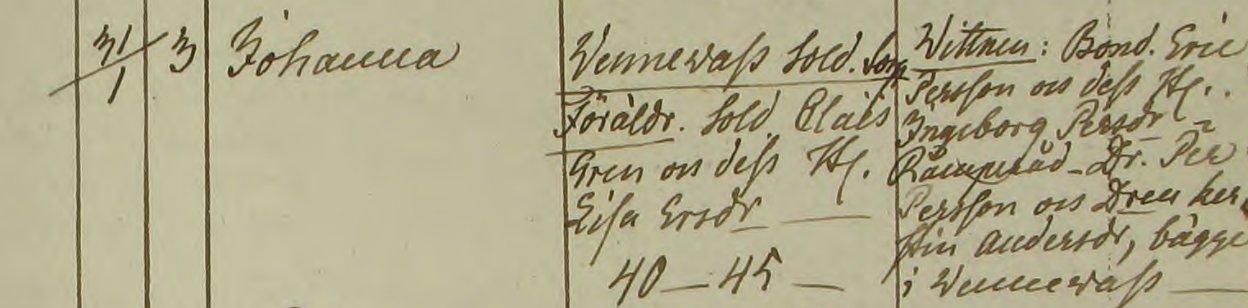 31/1 3 Johanna
Wennewass Sold. Torp
Föräldr. Sold. Claës
Gren os dess H.
Lisa Ersdr
40 – 45 –
Wittnen: Bond. Eric
Persson os dess H.
Ingeborg Persdr
Dr. Per
Persson os Dren Ker
stin Andersdr, bägge
i Wennewass